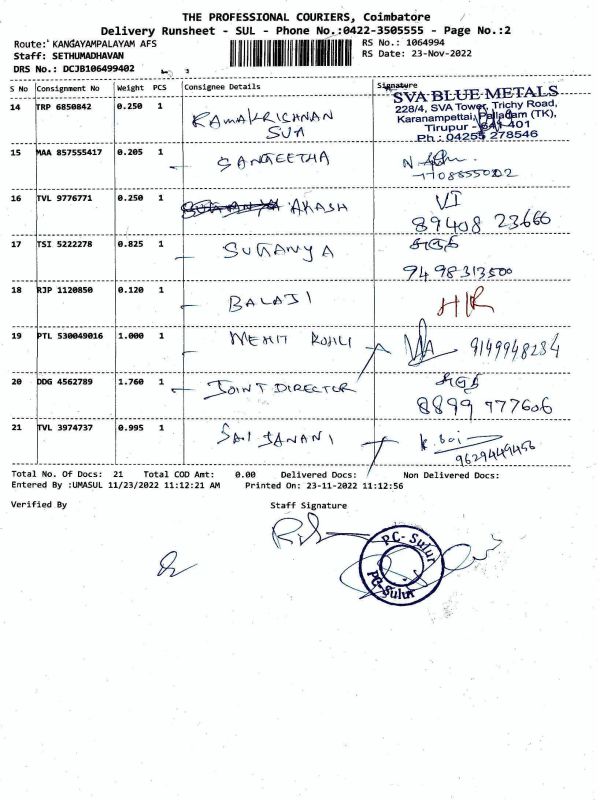 THE PROFESSIONAL COURIERS, Coimbatore
Delivery Runsheet - SUL - Phone No.:0422-3505555 - Page No.:2
Route: KANGAYAMPALAYAM AFS RS No.: 1064994
Staff: SETHUMADHAVAN RS Date: 23-Nov-2022
DRS No.: DCJB106499402
S No Consignment No Weight PCS Consignee Details Signature
SVA BLUE METALS
228/4, SVA Tower, Trichy Road,
Karanampettai, Palladam (TK),
Tirupur - 641-401
Ph : 04255 278546
14 TRP 6850842 0.250 1 RAMAKRISHNAN
SVA
15 MAA 857555417 0.205 1 SANGEETHA
16 TVL 9776771 0.250 1 AKASH VI
89408 23666
17 TSI 5222278 0.825 1 SUGANYA
9498313500
18 RJP 1120850 0.120 1 BALAJI
19 PTL 530049016 1.000 1 MEHIT KOHLI 9149948284
20 DDG 4562789 1.760 1 JOINT DIRECTOR
8899 777606
21 TVL 3974737 0.995 1 SAI JANANI K. Sai
9629449456
Total No. Of Docs: 21 Total COD Amt: 0.00 Delivered Docs: Non Delivered Docs:
Entered By :UMASUL 11/23/2022 11:12:21 AM Printed On: 23-11-2022 11:12:56
Verified By Staff Signature
PC- Sulur
PC-Sulur